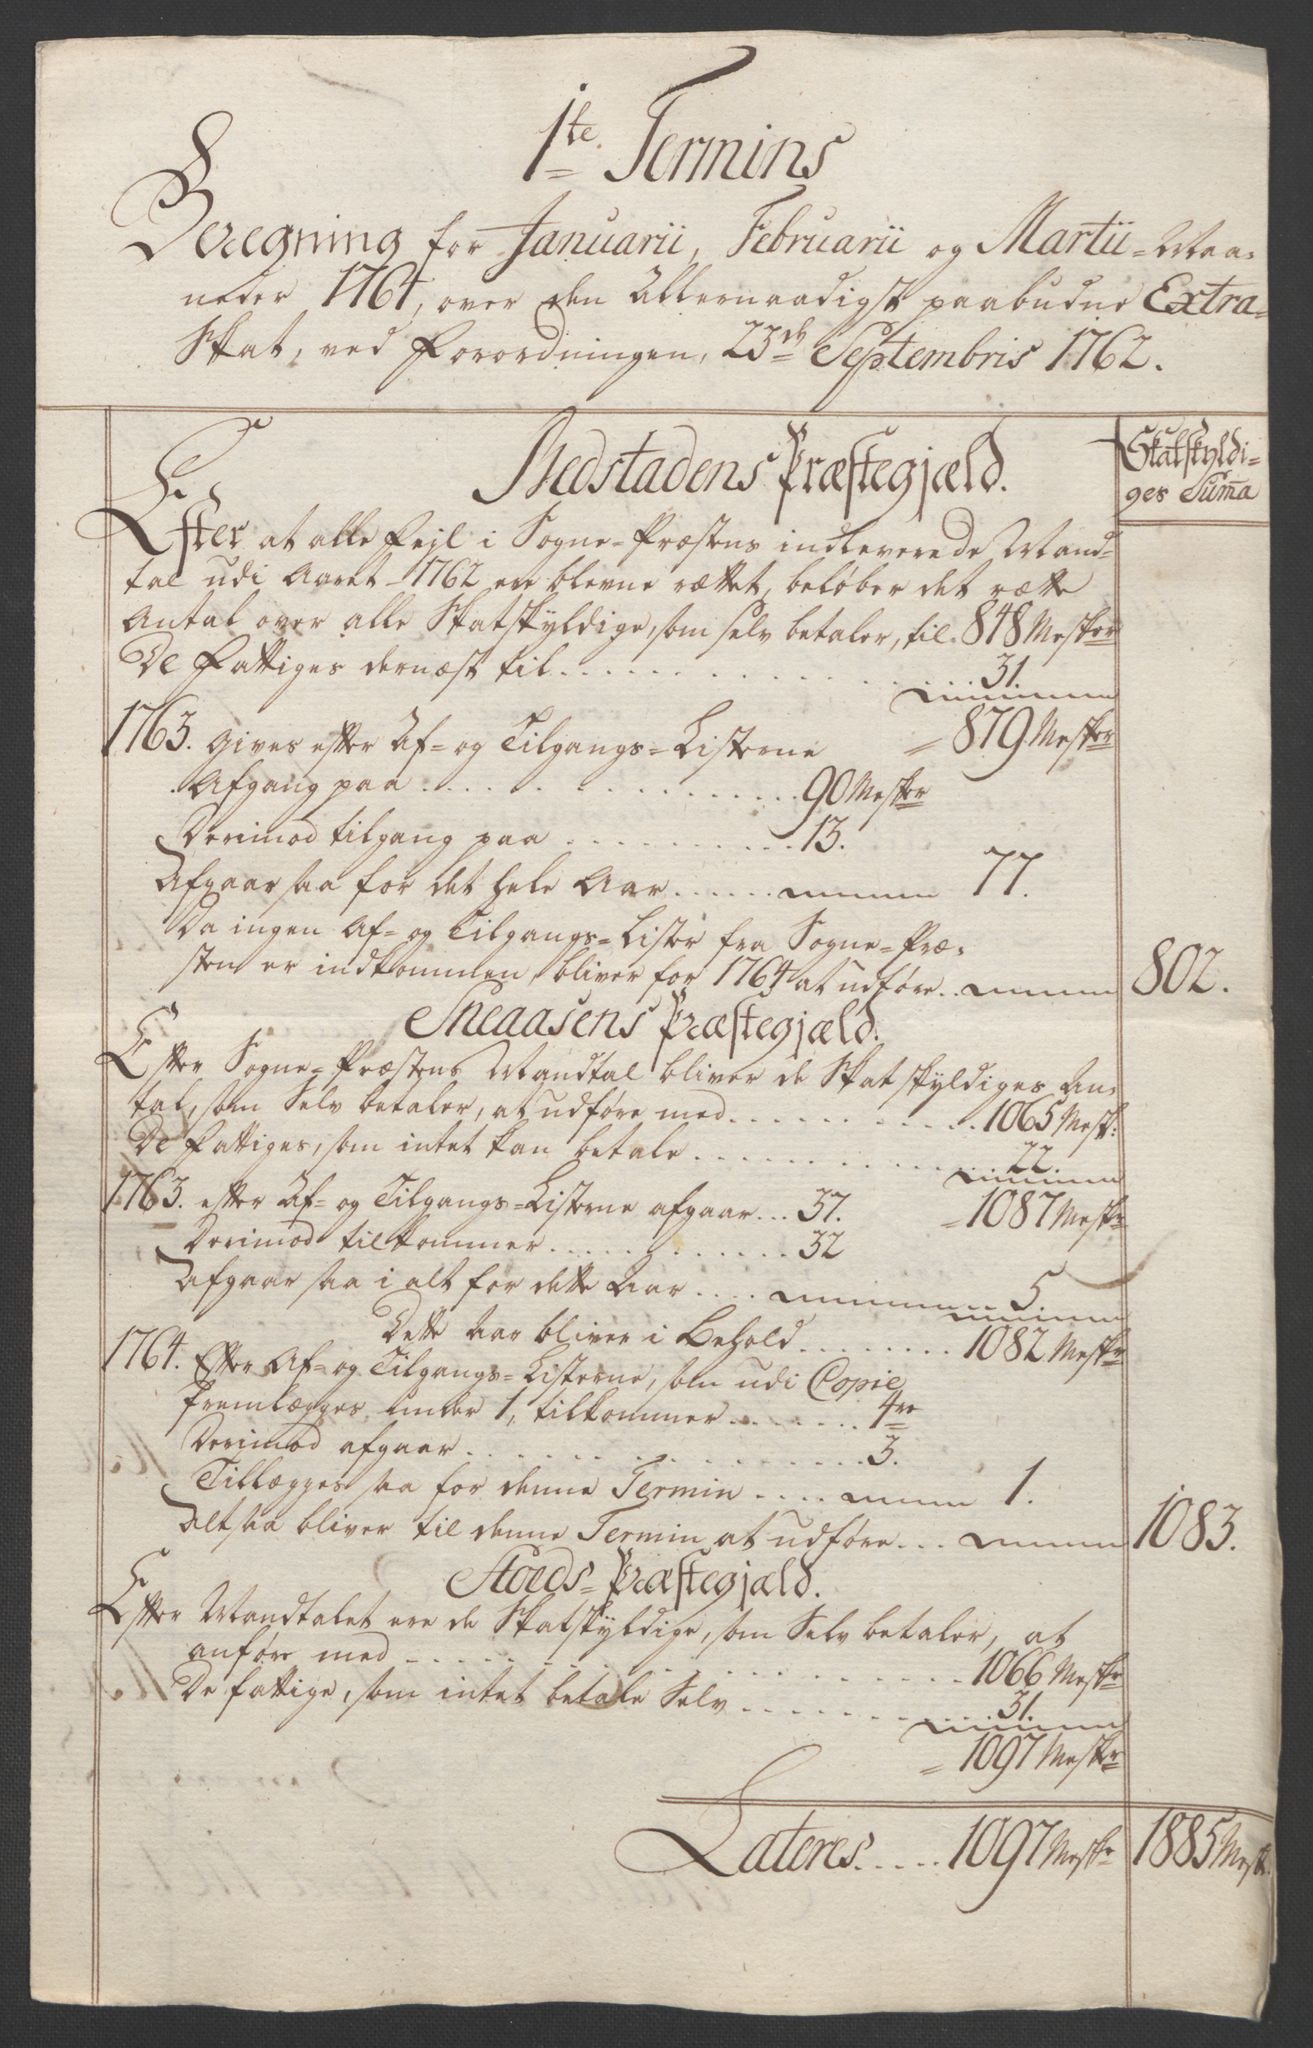 1te Termins
Beregning for Januarii, Februarii og Martii-Maa-
neder 1764, over den Allernaadigst paabudne Extra-
Skat, ved Forordningen, 23de Septembris 1762.
Skatskyldi-
ges Suma
Medstadens Præstegjæld.
Efter at alle Feyl i Sogne-Præstens indleverede Mand-
tal udi Aaret 1762 ere blevne rættet, beløber det rætte
Antal over alle Skatskyldige, som selv betaler, til 848 Mskr
De Fattiges dernæst til . . . . 31.
1763. gives efter Af- og Tilgangs-Listerne = 879 Mskr
Afgang paa . . . . 90 Mskr
Derimod tilgang paa . . . . 13.
Afgaar saa for det hele Aar . . . . 77.
Da ingen Af- og Tilgangs-Lister fra Sogne-Præ-
sten er indkommen, bliver for 1764 at udføre . . 802.
Sneaasens Præstegjæld.
Efter Sogne-Præstens Mandtal bliver de Skatskyldiges An-
tal, som Selv betaler, at udføre med . . . . 1065 Msk:
De Fattiges, som intet kan betale . . . . 22.
1763. efter Af- og Tilgangs-Listerne afgaar . . . 37. = 1087 Mskr
Derimod tilkommer . . . . 32
Afgaar saa i alt for dette Aar . . . . 5.
Dette Aar bliver i Behold . . . . 1082 Mskr
1764. Efter Af- og Tilgangs-Listerne, som udi Copie
fremlægges under 1, tilkommer . . . . 4re
Derimod afgaar . . . . 3.
Tillægges saa for denne Termin . . . . 1.
Altsaa bliver til denne Termin at udføre . . . 1083.
Stoeds-Præstegjæld.
Efter Mandtalet ere de Skatskyldige, som Selv betaler, at
anføre med . . . . 1066 Mskr
De fattige, som intet betale Selv . . . . 31.
= 1097 Mskr
Lateres . . . . . 1097 Mskr 1885 Mskr